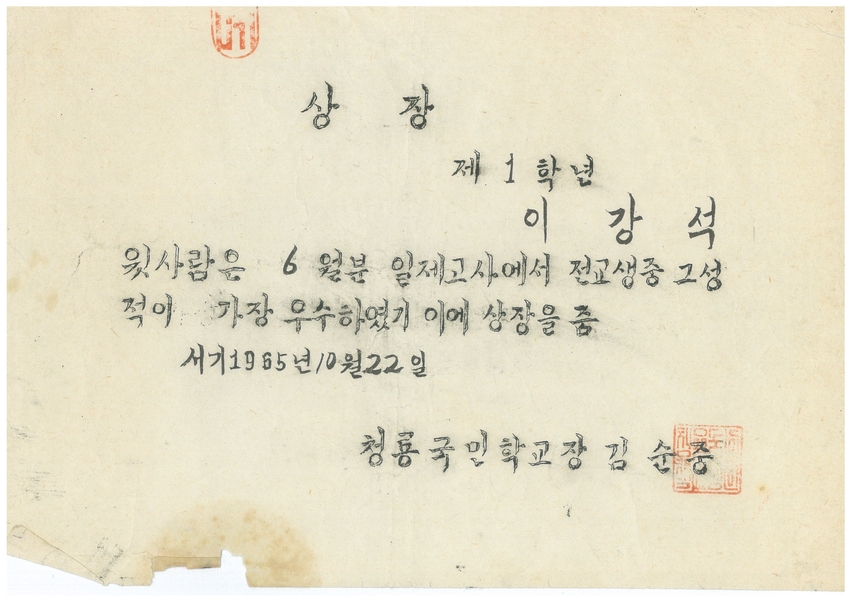 상 장
제 1 학년
이 강 석
윗사람은 6 월분 일제고사에서 전교생중 그성
적이 가장 우수하였기 이에 상장을 줌
서기1965년10월22일
청룡국민학교장 김순중